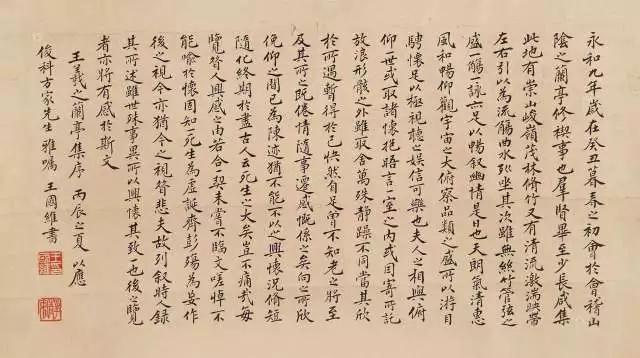 永和九年歲在癸丑暮春之初會於會稽山
陰之蘭亭修禊事也羣賢畢至少長咸集
此地有崇山峻嶺茂林脩竹又有清流激湍映帶
左右引以為流觴曲水列坐其次雖無絲竹管弦之
盛一觴一詠亦足以暢敘幽情是日也天朗氣清惠
風和暢仰觀宇宙之大俯察品類之盛所以游目
騁懷足以極視聽之娛信可樂也夫人之相與俯
仰一世或取諸懷抱晤言一室之內或因寄所託
放浪形骸之外雖取舍萬殊靜躁不同當其欣
於所遇暫得於己快然自足曾不知老之將至
及其所之既倦情隨事遷感慨係之矣向之所欣
俛仰之間已為陳迹猶不能不以之興懷況脩短
隨化終期於盡古人云死生亦大矣豈不痛哉每
覽昔人興感之由若合契未嘗不臨文嗟悼不
能喻於懷固知一死生為虛誕齊彭殤為妄作
後之視今亦猶今之視昔悲夫故列敘時人錄
其所述雖世殊事異所以興懷其致一也後之覽
者亦將有感於斯文
王羲之蘭亭集序 丙辰之夏 以應
俊科方家先生 雅囑 王國維書